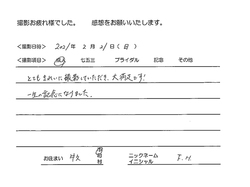 撮影お疲れ様でした。 感想をお願いいたします。
<撮影日時> 2021年 2月21日(日)
<撮影項目> 成人 七五三 ブライダル 記念 その他
とてもきれいに撮影していただき、大満足です!
一生の記念になりました。
お住まい 市 ニックネーム
イニシャル